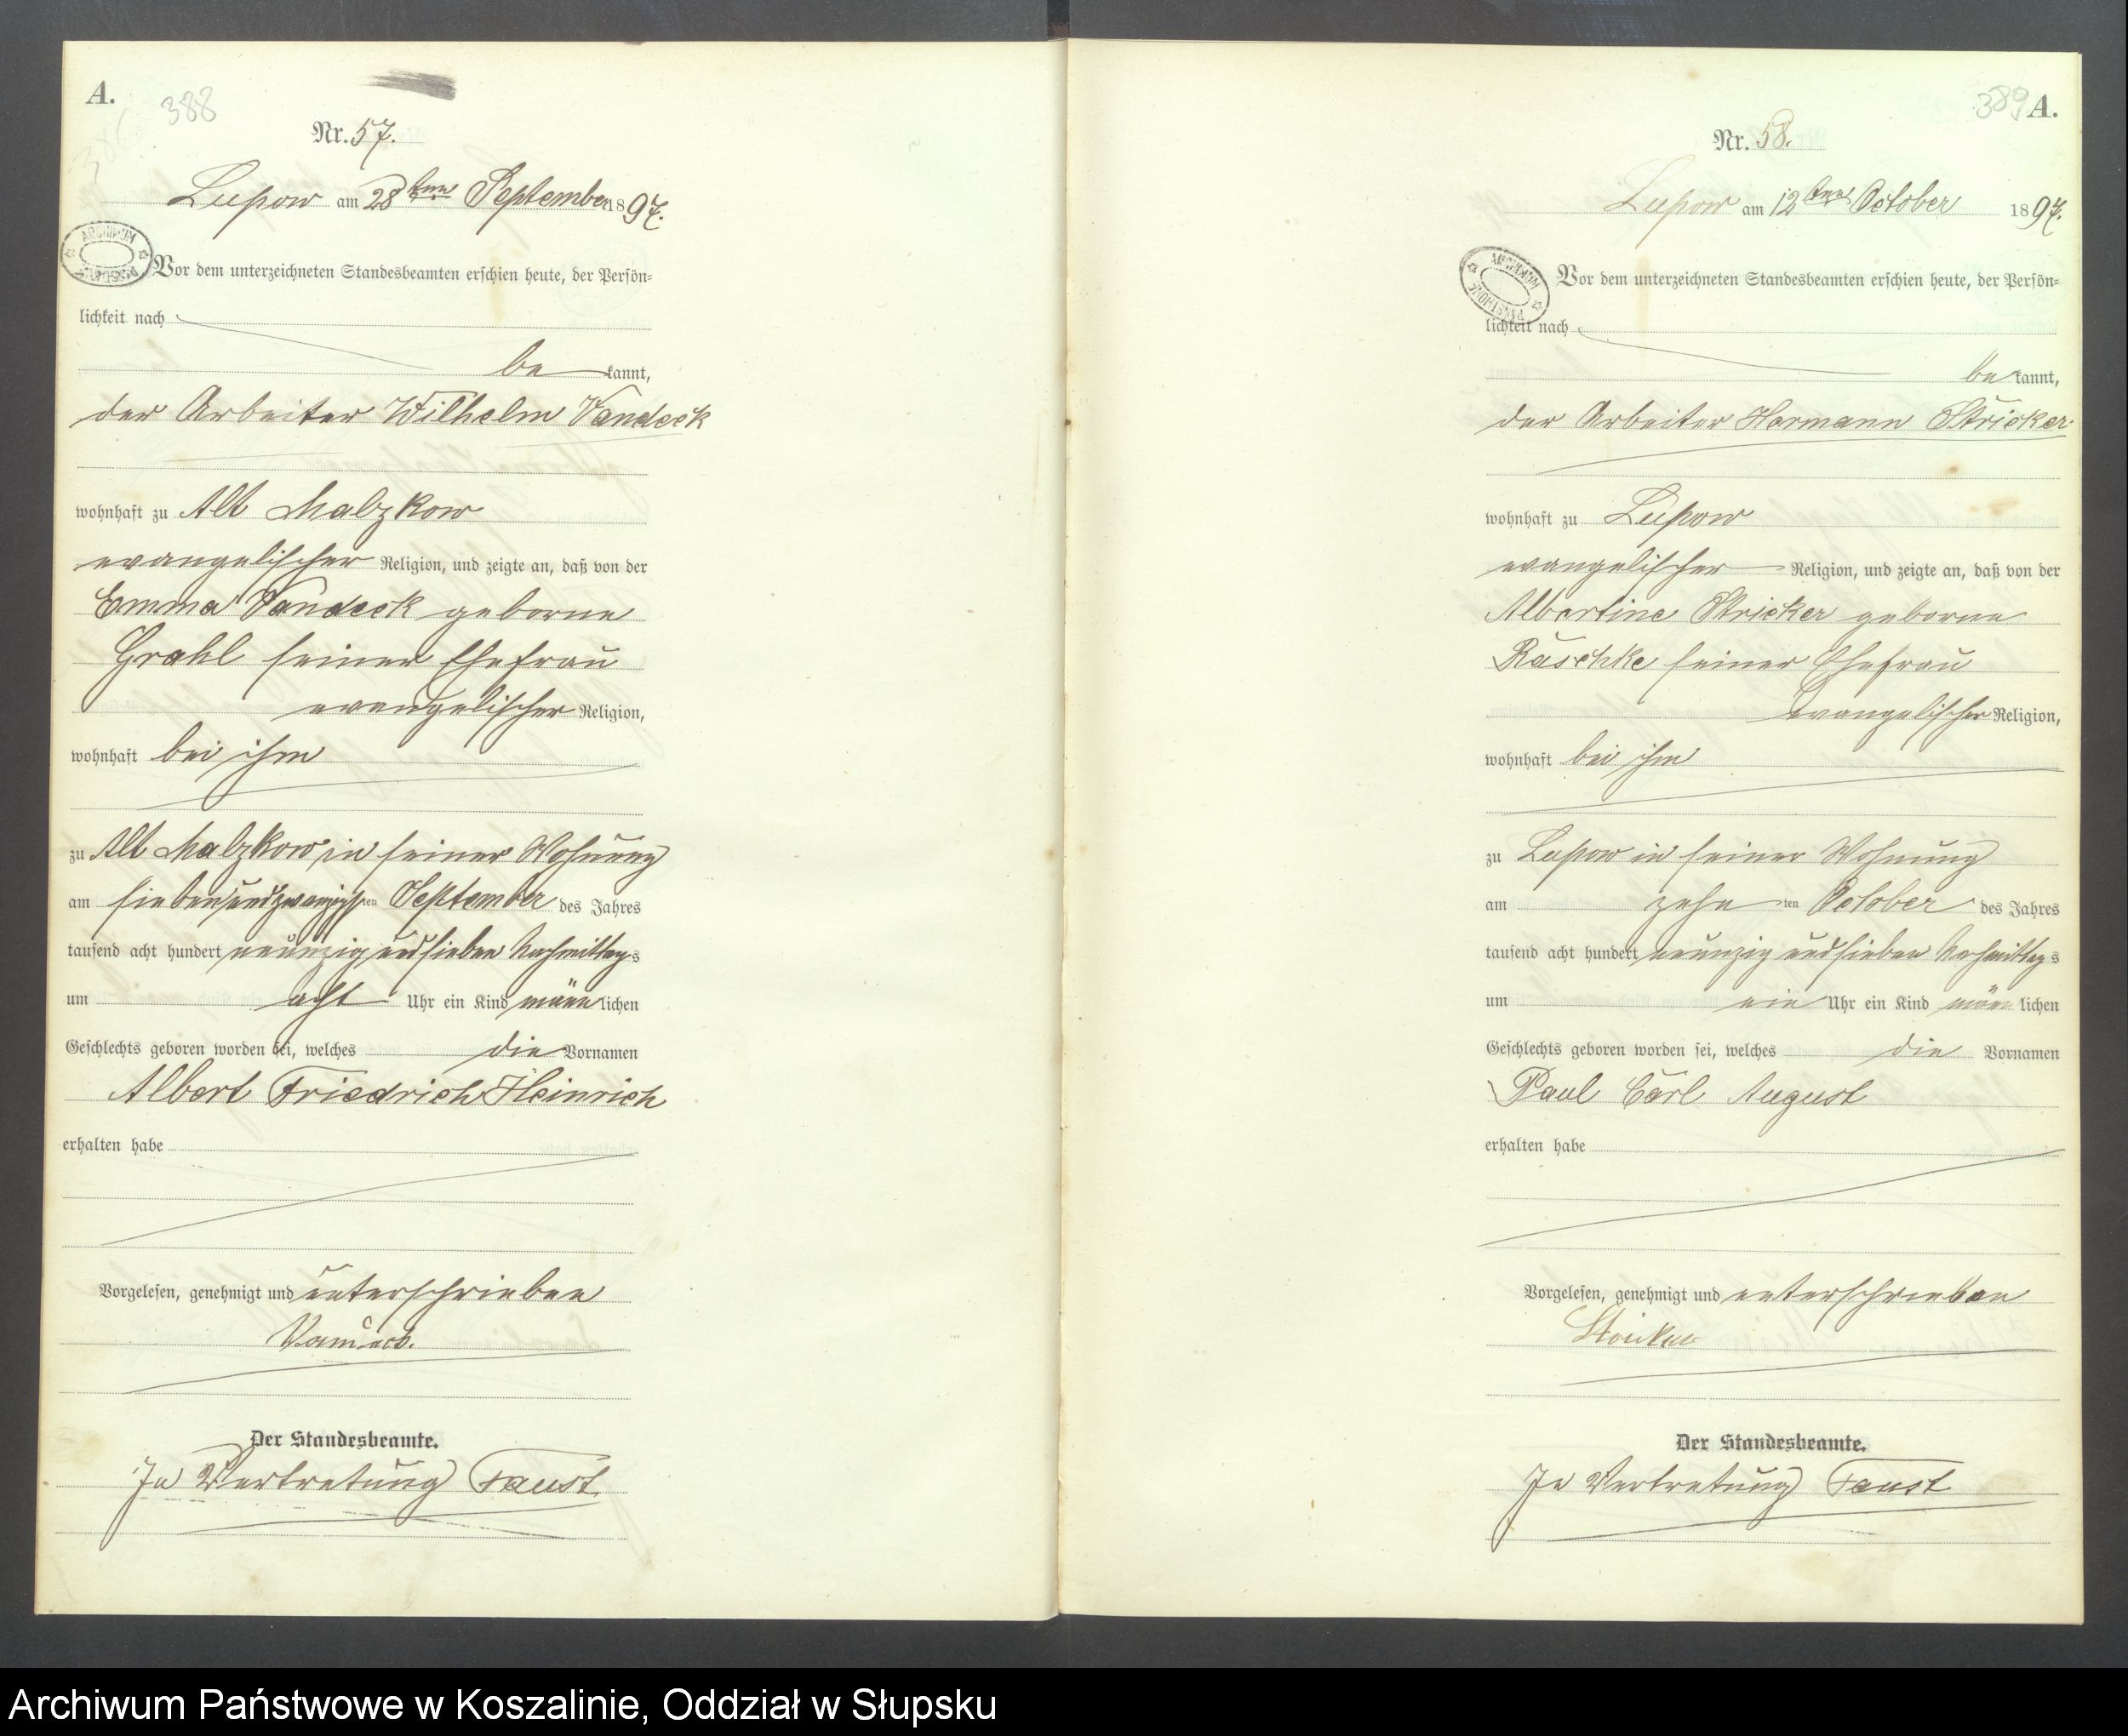 A.
388
Nr. 57.
Lupow am 28ten September 1897.
Vor dem unterzeichneten Standesbeamten erschien heute, der Persön-
lichkeit nach
be kannt,
der Arbeiter Wilhelm Vandeck
wohnhaft zu Alt Malzkow
evangelischer Religion, und zeigte an, daß von der
Emma Vandeck geborne
Grahl seiner Ehefrau
evangelischer Religion,
wohnhaft bei ihm
zu Alt Malzkow in seiner Wohnung
am siebenundzwanzigsten September des Jahres
tausend acht hundert neunzig und sieben Nachmittags
um acht Uhr ein Kind männlichen
Geschlechts geboren worden sei, welches die Vornamen
Albert Friedrich Heinrich
erhalten habe
Vorgelesen, genehmigt und unterschrieben
Der Standesbeamte.
In Vertretung Faust
389 A.
Nr. 58.
Lupow am 12ten October 1897.
Vor dem unterzeichneten Standesbeamten erschien heute, der Persön-
lichkeit nach
be kannt,
der Arbeiter Hermann Stricker
wohnhaft zu Lupow
evangelischer Religion, und zeigte an, daß von der
Albertine Stricker geborne
Raschke seiner Ehefrau
evangelischer Religion,
wohnhaft bei ihm
zu Lupow in seiner Wohnung
am zehnten October des Jahres
tausend acht hundert neunzig und sieben Nachmittags
um ein Uhr ein Kind männlichen
Geschlechts geboren worden sei, welches die Vornamen
Paul Carl August
erhalten habe
Vorgelesen, genehmigt und unterschrieben
Stricker
Der Standesbeamte.
In Vertretung Faust
Archiwum Państwowe w Koszalinie, Oddział w Słupsku